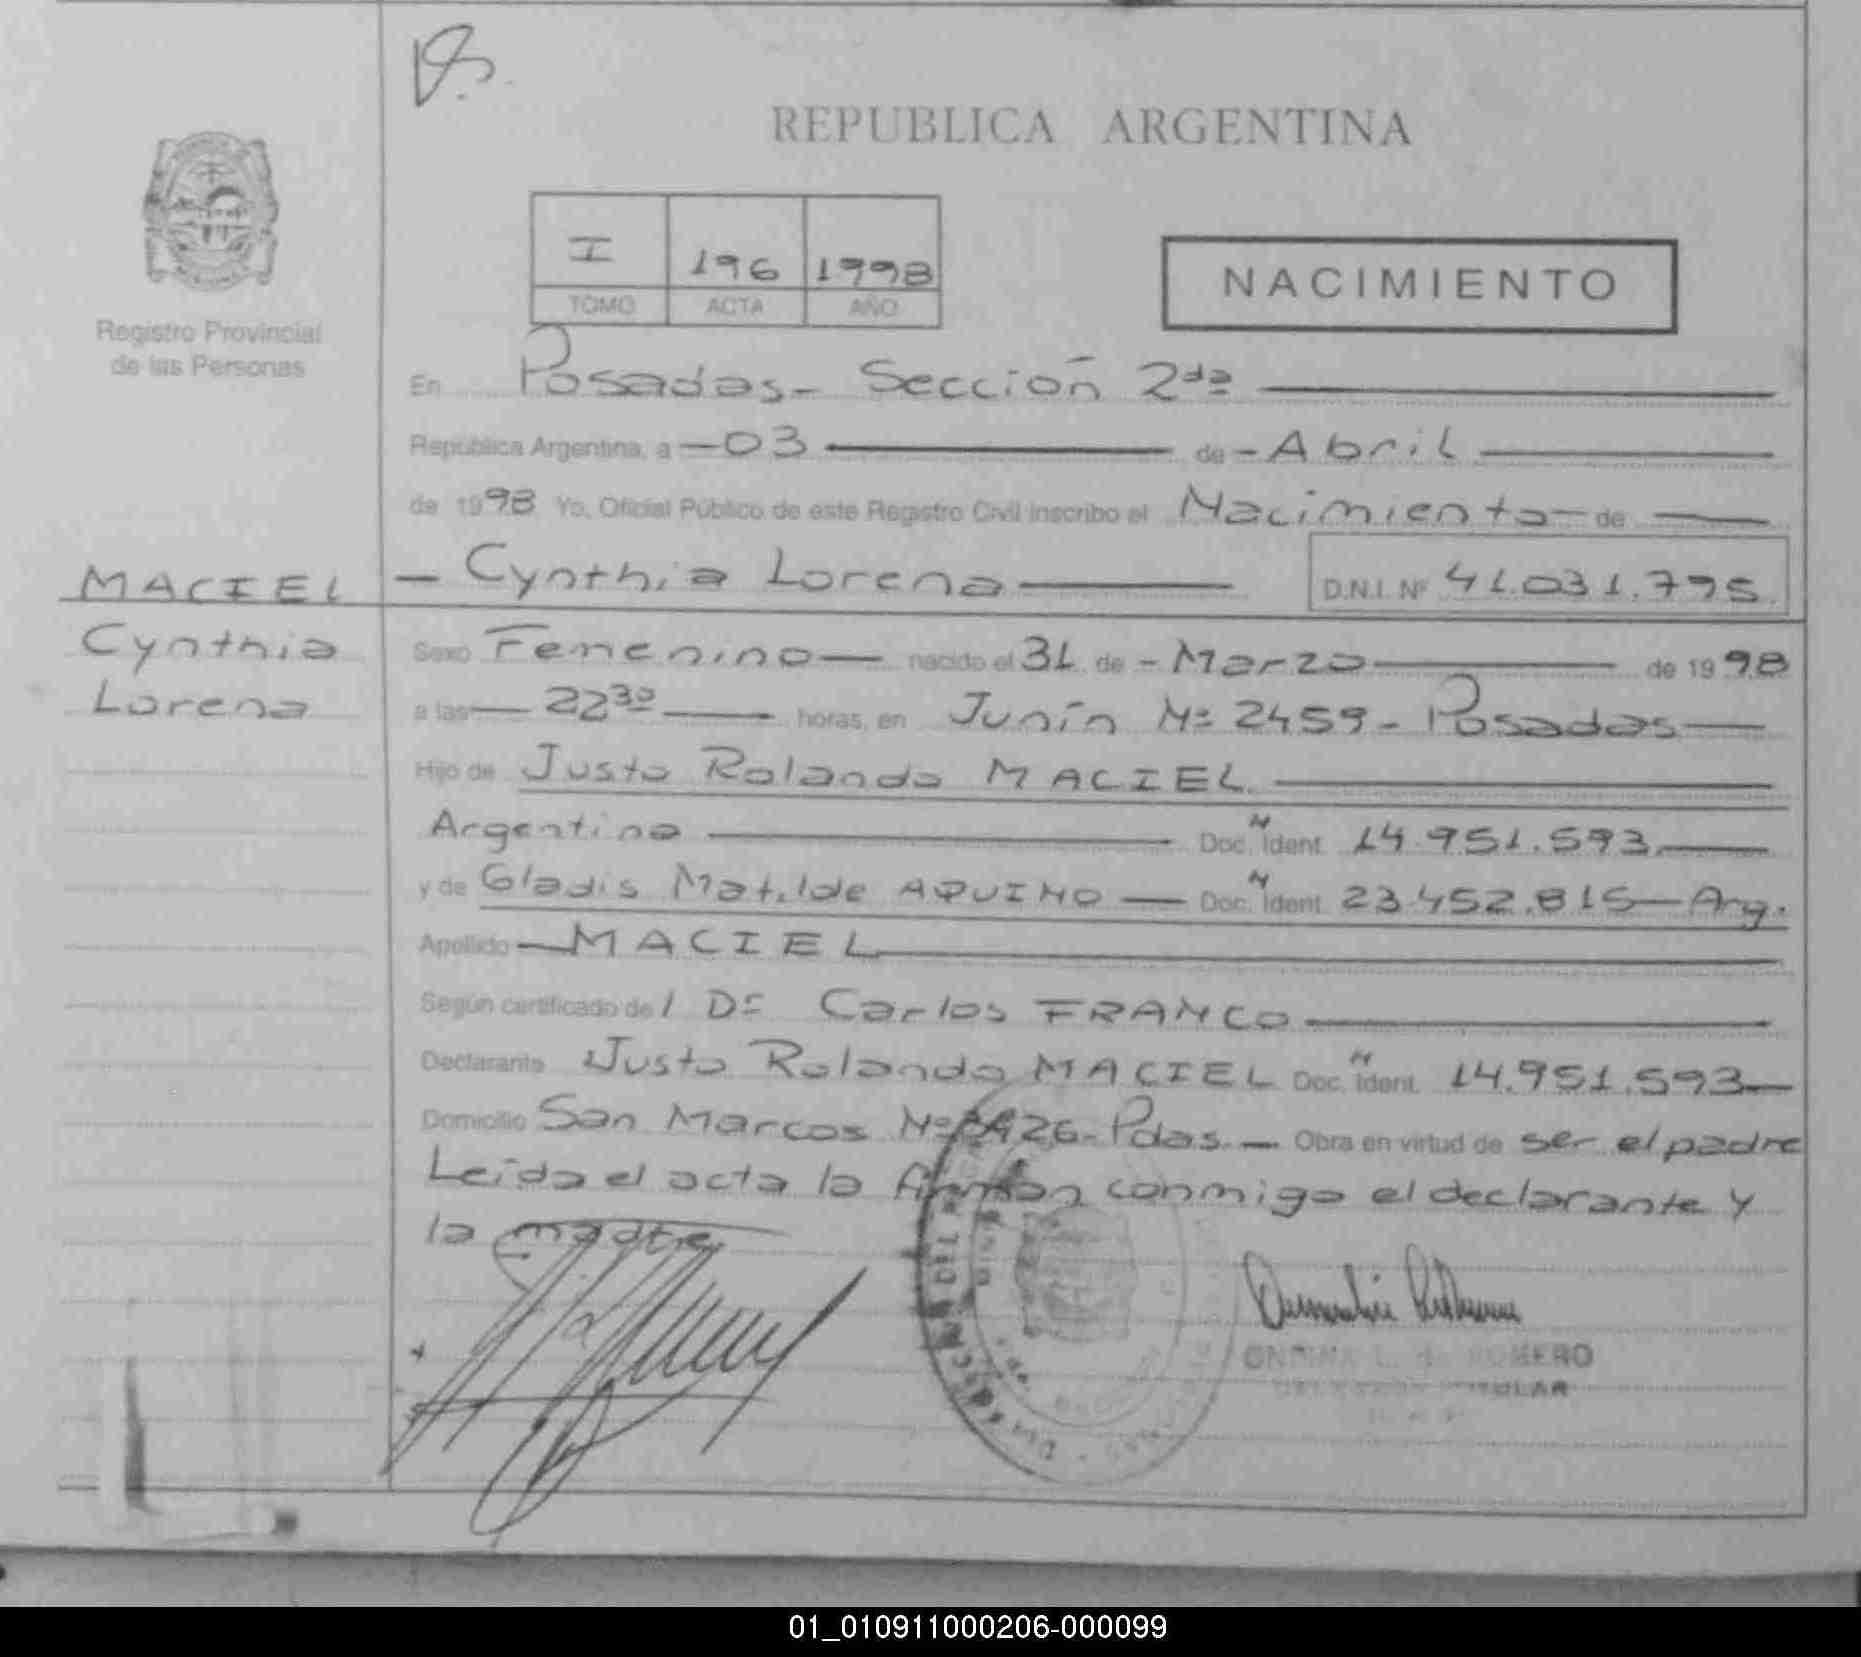 REPUBLICA ARGENTINA
I 196 1998
TOMO ACTA AÑO
NACIMIENTO
Registro Provincial
de las Personas
En Posadas - Sección 2da
República Argentina, a - 03 de - Abril
de 1998 Yo, Oficial Público de este Registro Civil inscribo el Nacimiento - de
MACIEL
Cynthia
Lorena
- Cynthia Lorena D.N.I. Nº 41.031.795
Sexo Femenino nacido el 31 de - Marzo de 1998
a las 22 30 horas, en Junín Nº 2459 - Posadas
Hijo de Justo Rolando MACIEL
Argentino Doc. Ident. 14.951.593
y de Gladis Matilde AQUINO Doc. Ident. 23.452.815 - Arg.
Apellido MACIEL
Según certificado del Dr Carlos FRANCO
Declarante Justo Rolando MACIEL Doc. Ident. 14.951.593
Domicilio San Marcos Nº 26 - Pdas. - Obra en virtud de ser el padre
Leída el acta la firman conmigo el declarante y
la madre
L. de ROMERO
TITULAR
01_010911000206-000099